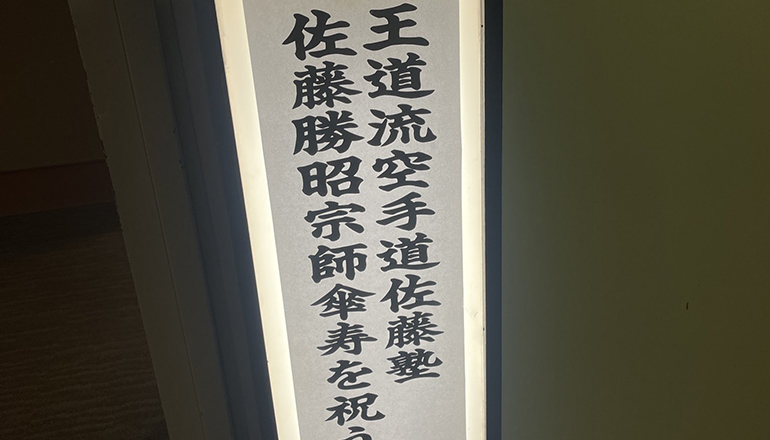 王道流空手道佐藤塾
佐藤勝昭宗師傘寿を祝う